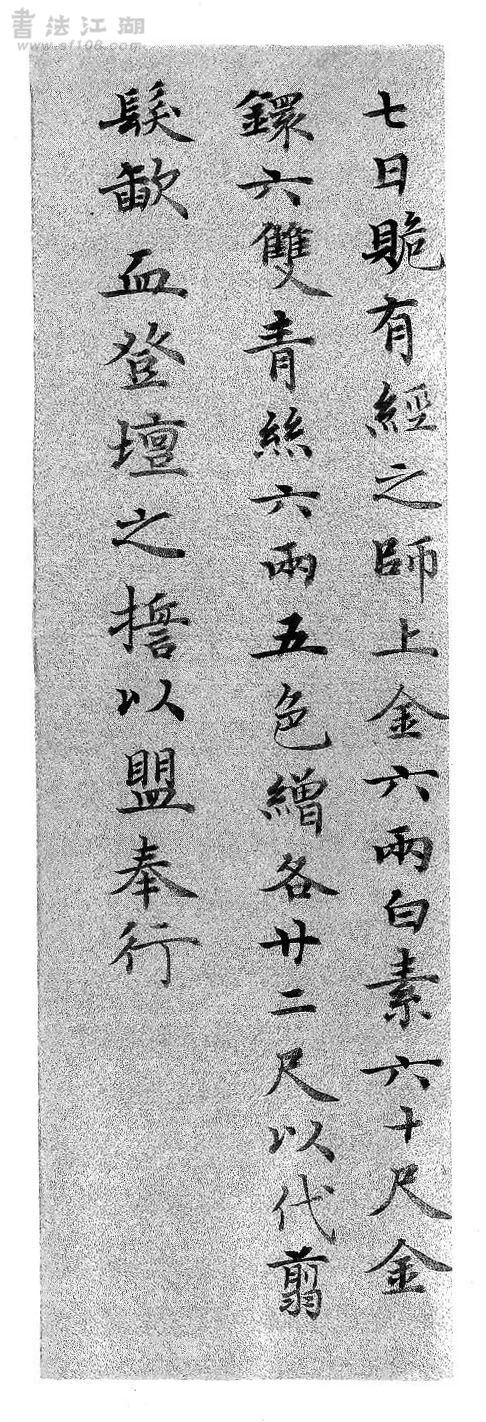 書法江湖
www.sf108.com
七日賍有經之師上金六兩白素六十尺金
鐶六雙青絲六兩五色繒各廿二尺以代翦
髮歃血登壇之擔以盟奉行